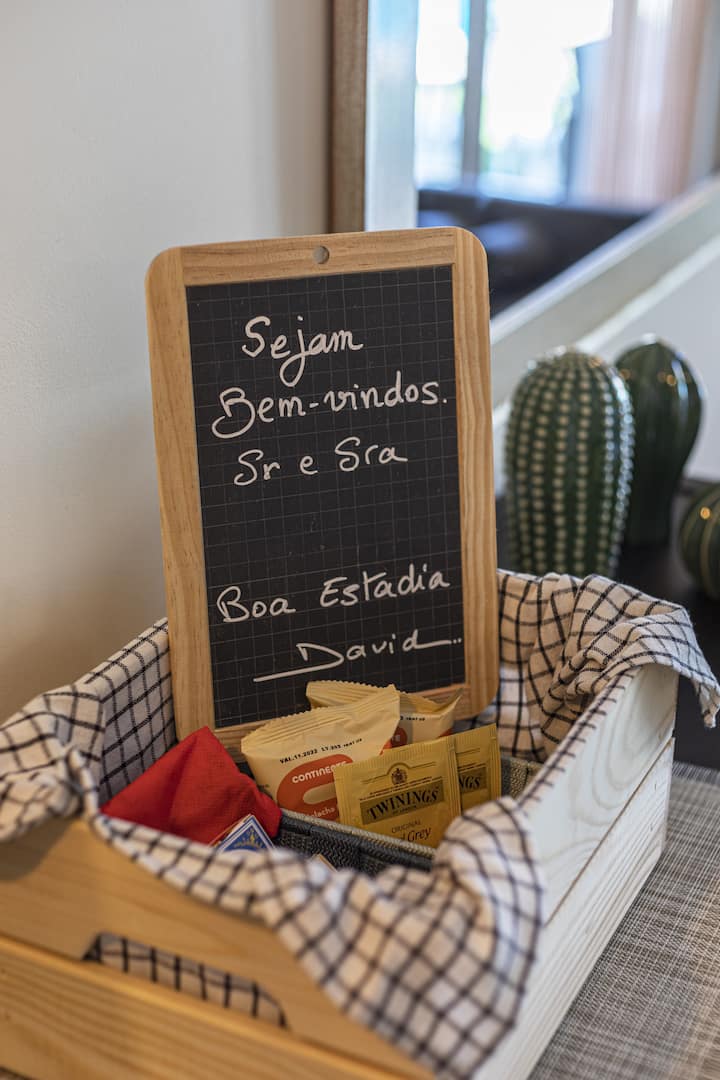 Sejam
Bem-vindos.
Sr e Sra
Boa Estadia
David..
VAL.11.2022
CONTINENTE
TWININGS
ORIGINAL
Grey